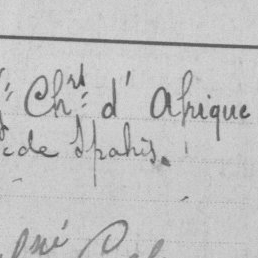 Ch^rs d' Afrique
de Spahis.
né